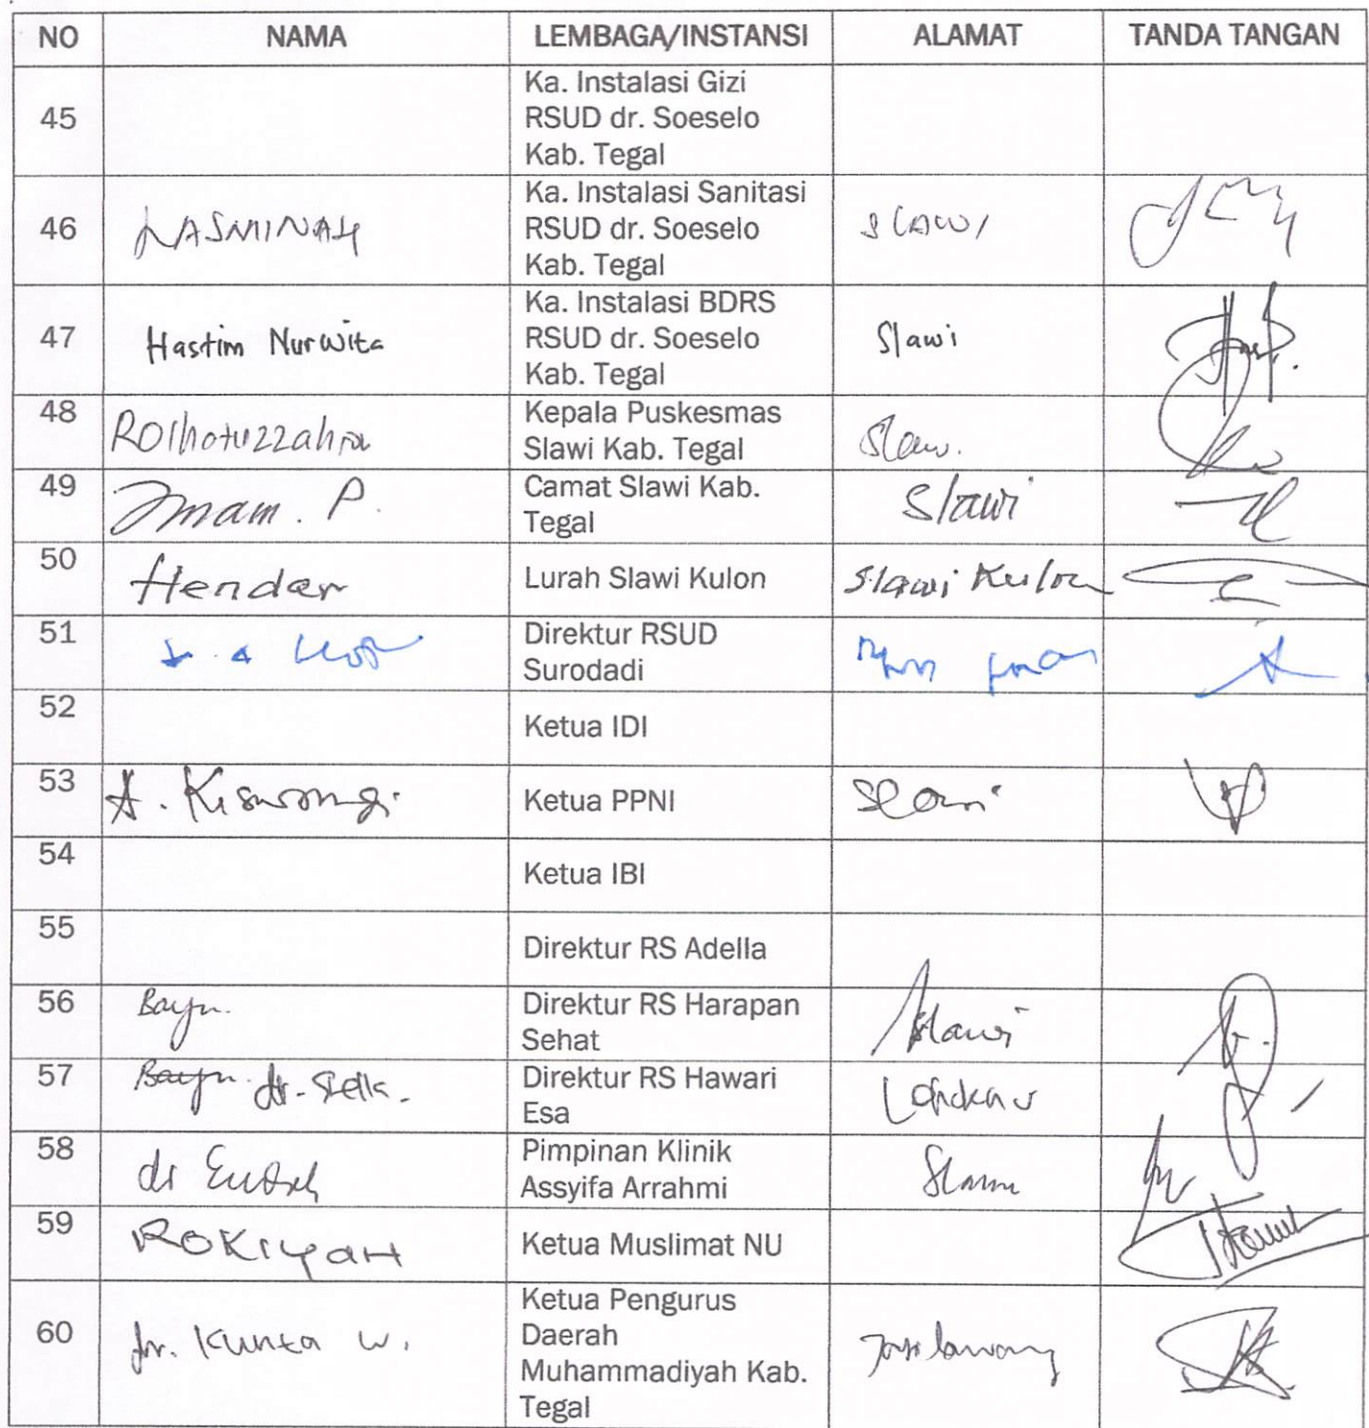 NO NAMA LEMBAGA/INSTANSI ALAMAT TANDA TANGAN
45 Ka. Instalasi Gizi
RSUD dr. Soeselo
Kab. Tegal
46 LASMINAH Ka. Instalasi Sanitasi SLAWI
RSUD dr. Soeselo
Kab. Tegal
47 Hastim Nurwita Ka. Instalasi BDRS Slawi
RSUD dr. Soeselo
Kab. Tegal
48 Kepala Puskesmas Slawi
Slawi Kab. Tegal
49 Imam. P. Camat Slawi Kab. Slawi
Tegal
50 Hendar Lurah Slawi Kulon Slawi Kulon
51 Direktur RSUD
Surodadi
52 Ketua IDI
53 A. Ketua PPNI Slawi
54 Ketua IBI
55 Direktur RS Adella
56 Bayu. Direktur RS Harapan Slawi
Sehat
57 Bayu. dr. Stella. Direktur RS Hawari
Esa
58 dr Pimpinan Klinik Slawi
Assyifa Arrahmi
59 ROKIYAH Ketua Muslimat NU
60 dr. Kunta W. Ketua Pengurus
Daerah
Muhammadiyah Kab.
Tegal